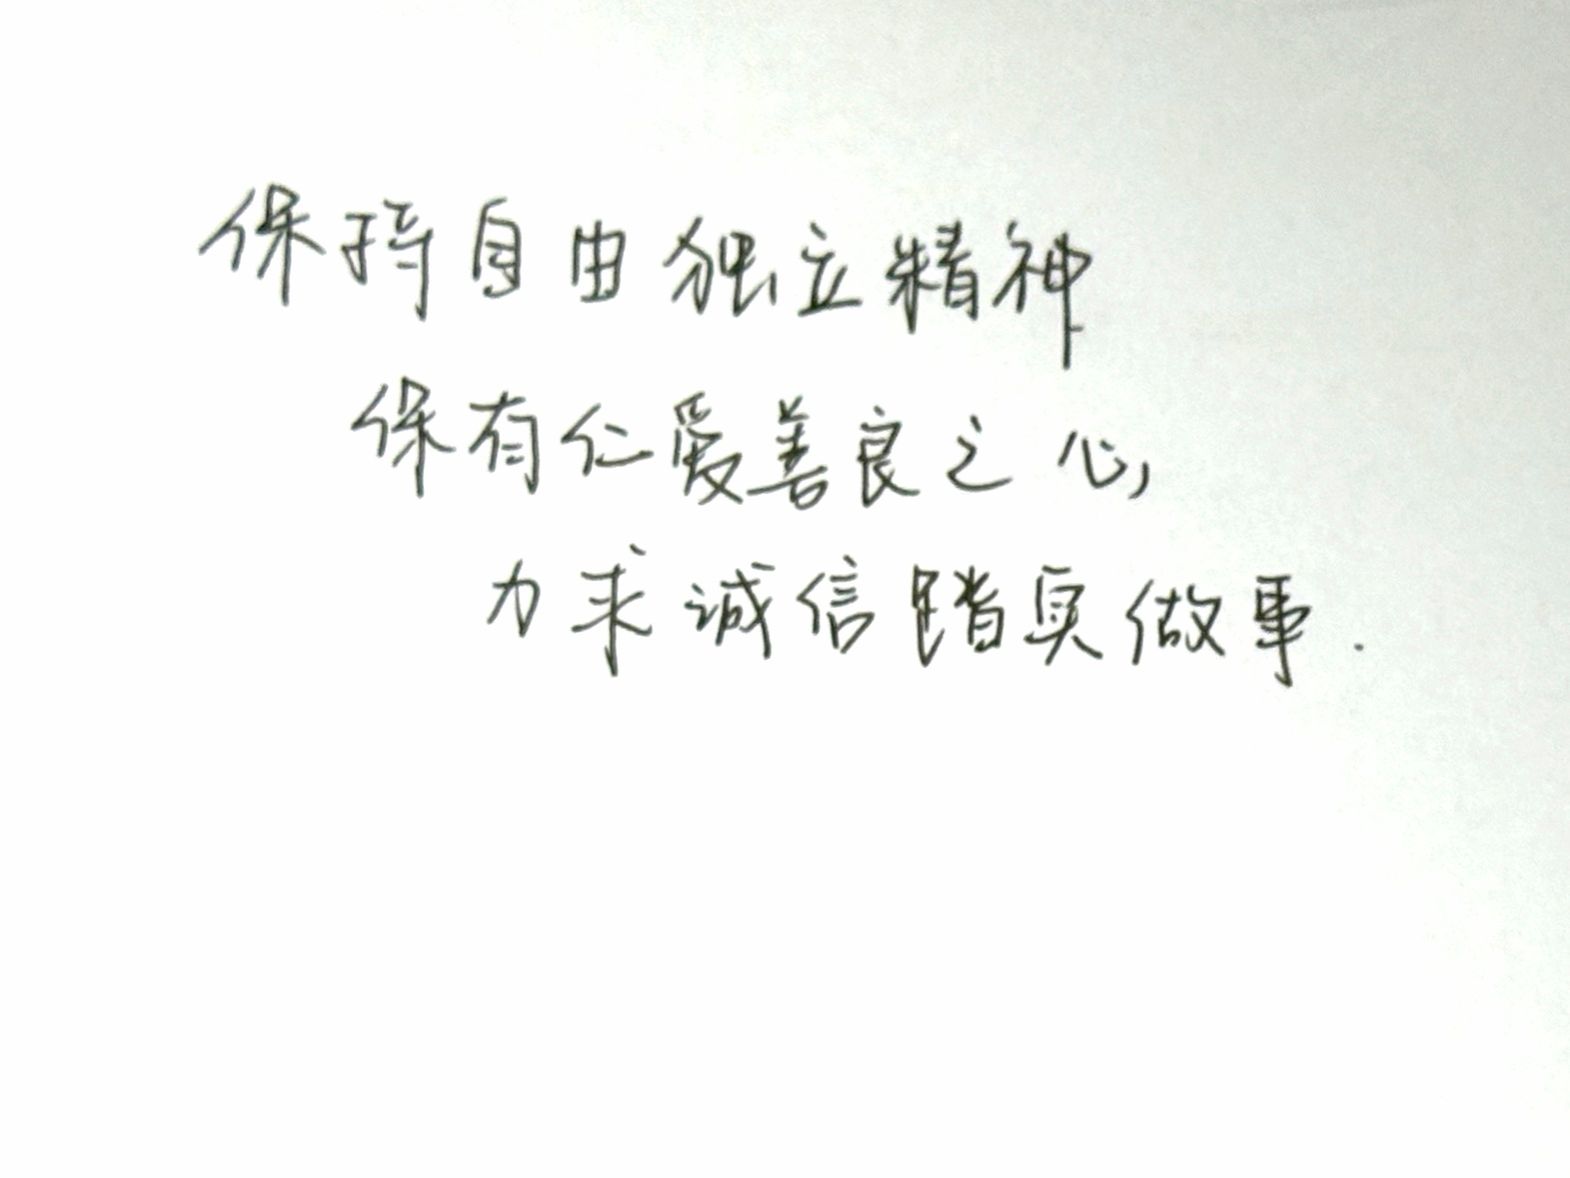 保持自由独立精神
保有仁爱善良之心,
力求诚信踏实做事.